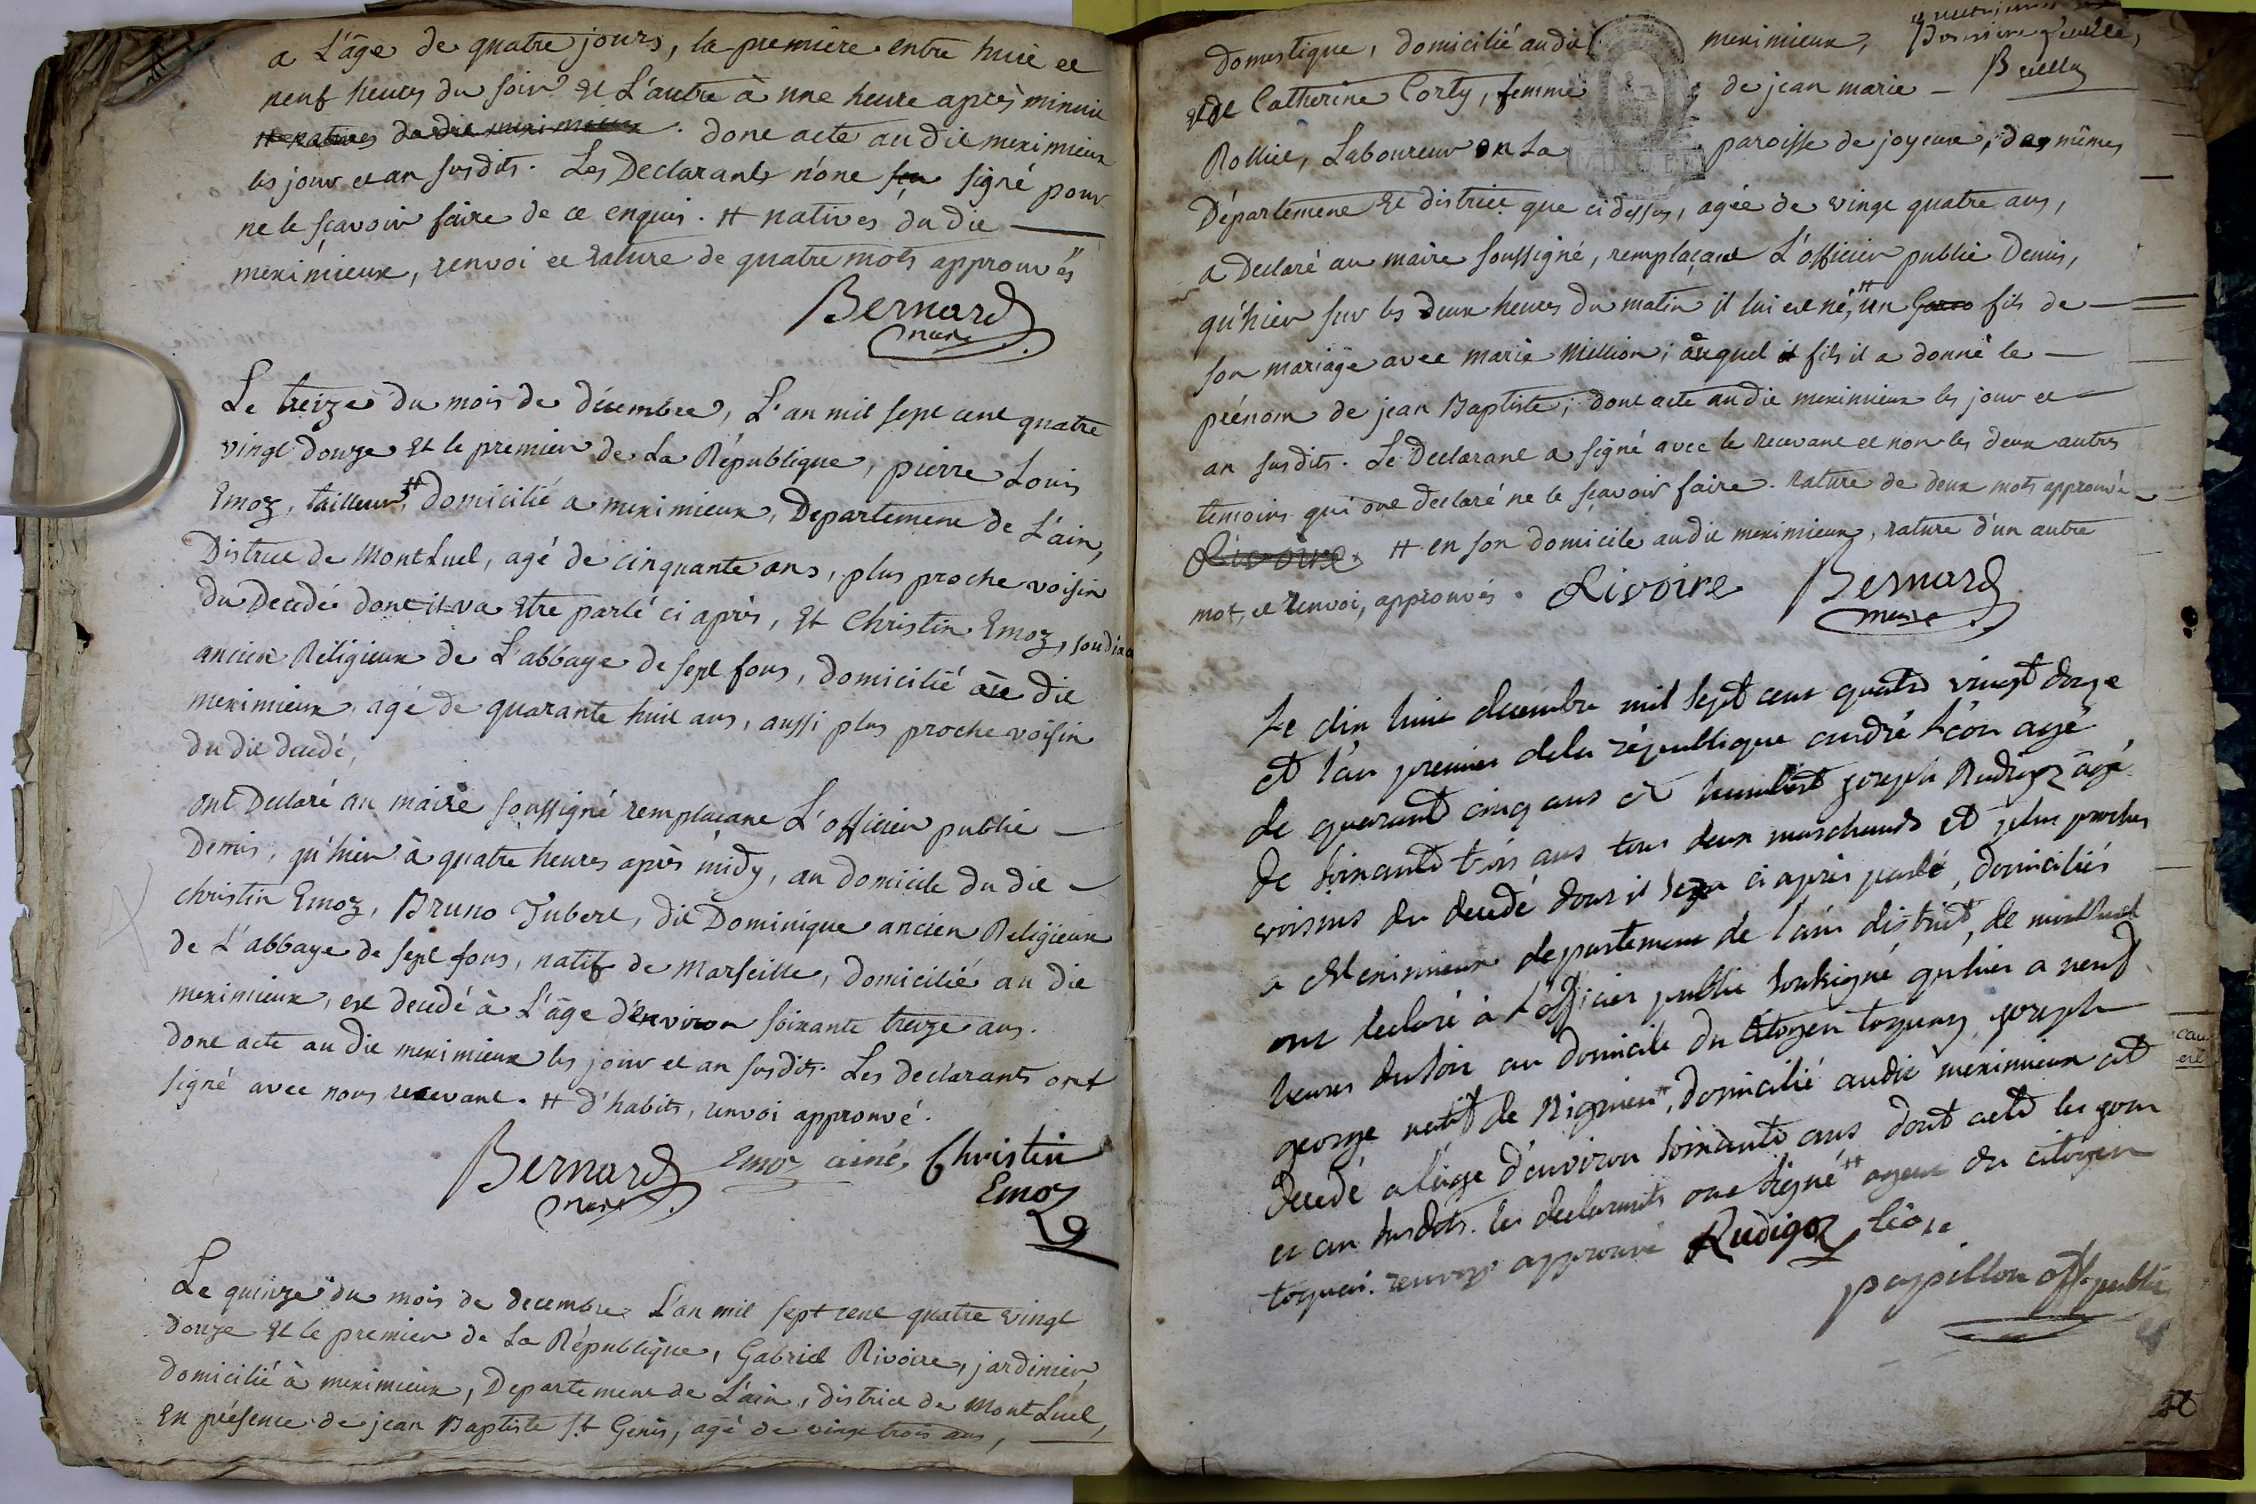 a L'âge de quatre jours, la premiere entre huit et
neuf heures du soir et L'autre à une heure après minuit
# natives du dit meximieux. dont acte au dit meximieux
les jour et an susdits. Les Declarants n'ont sçu signé pour
ne le sçavoir faire de ce enquis. # natives du dit —
meximieux, renvoi et rature de quatre mots approuvés
Bernard
maire
Le treize du mois de décembre, L'an mil sept cent quatre
vingt douze et le premier de la République, pierre Louis
Emoz, tailleur # domicilié a meximieux, Departement de L'ain,
District de Montluel, agé de cinquante ans, plus proche voisin
du Decedé dont il va être parlé ci après, et Christin Emoz,
ancien Religieux de L'abbaye de sept fons, domicilié au dit
meximieux, agé de quarante huit ans, aussi plus proche voisin
du dit decedé,
ont Declaré au maire soussigné remplaçant L'officier public —
Demis, qu'hier à quatre heures après midy, au domicile du dit —
christin Emoz, Bruno Jubert, dit Dominique ancien Religieux
de L'abbaye de sept fons, natif de Marseille, domicilié au dit
meximieux, est decedé à L'âge d'environ soixante treize ans.
dont acte au dit meximieux les jour et an susdits. Les declarants ont
signé avec nous recevant. # d'habits, renvoi approuvé.
Bernard Emoz ainé, Christin
maire Emoz
Le quinze du mois de decembre L'an mil sept cent quatre vingt
douze et le premier de La République, Gabriel Rivoire, jardinier,
domicilié à meximieux, Departement de L'ain, district de Montluel,
En présence de jean Baptiste St Genis, agé de vingt trois ans,
Domestique, domicilié au dit meximieux,
et de Catherine Corty, femme de jean marie —
Rollie, Laboureur en La paroisse de joyeux, des mêmes
Département et district que ci dessus, agée de vingt quatre ans,
a Declaré au maire soussigné, remplaçant L'officier public Demis,
qu'hier sur les deux heures du matin il lui est né, # un fils de —
son mariage avec marie Million; auquel fils il a donné le —
prénom de jean Baptiste; dont acte au dit meximieux les jour et —
an susdits. Le Declarant a signé avec le recevant et non les deux autres
temoins qui ont declaré ne le sçavoir faire. rature de deux mots approuvée
Rivoire # en son domicile au dit meximieux, rature d'un autre
mot, et renvoi, approuvés. Rivoire Bernard
maire
Le dix huit decembre mil sept cent quatre vingt douze
et l'an premier de la république andré Léon agé
de quarante cinq ans et humbert joseph Rudigoz agé
de soixante trois ans tous deux marchands et plus proches
voisins du decedé dont il sera ci après parlé, domiciliés
a Meximieux departement de l'ain district de montluel
ont declaré à l'officier public soussigné qu'hier a neuf
heures du soir au domicile du Citoyen joseph
george natif de #, domicilié audit meximieux est
decedé a l'age d'environ soixante ans dont acte les jour
et an susdits. les declarants ont signé # agent du citoyen
renvoy approuvé Rudigoz Léon
papillon off. public